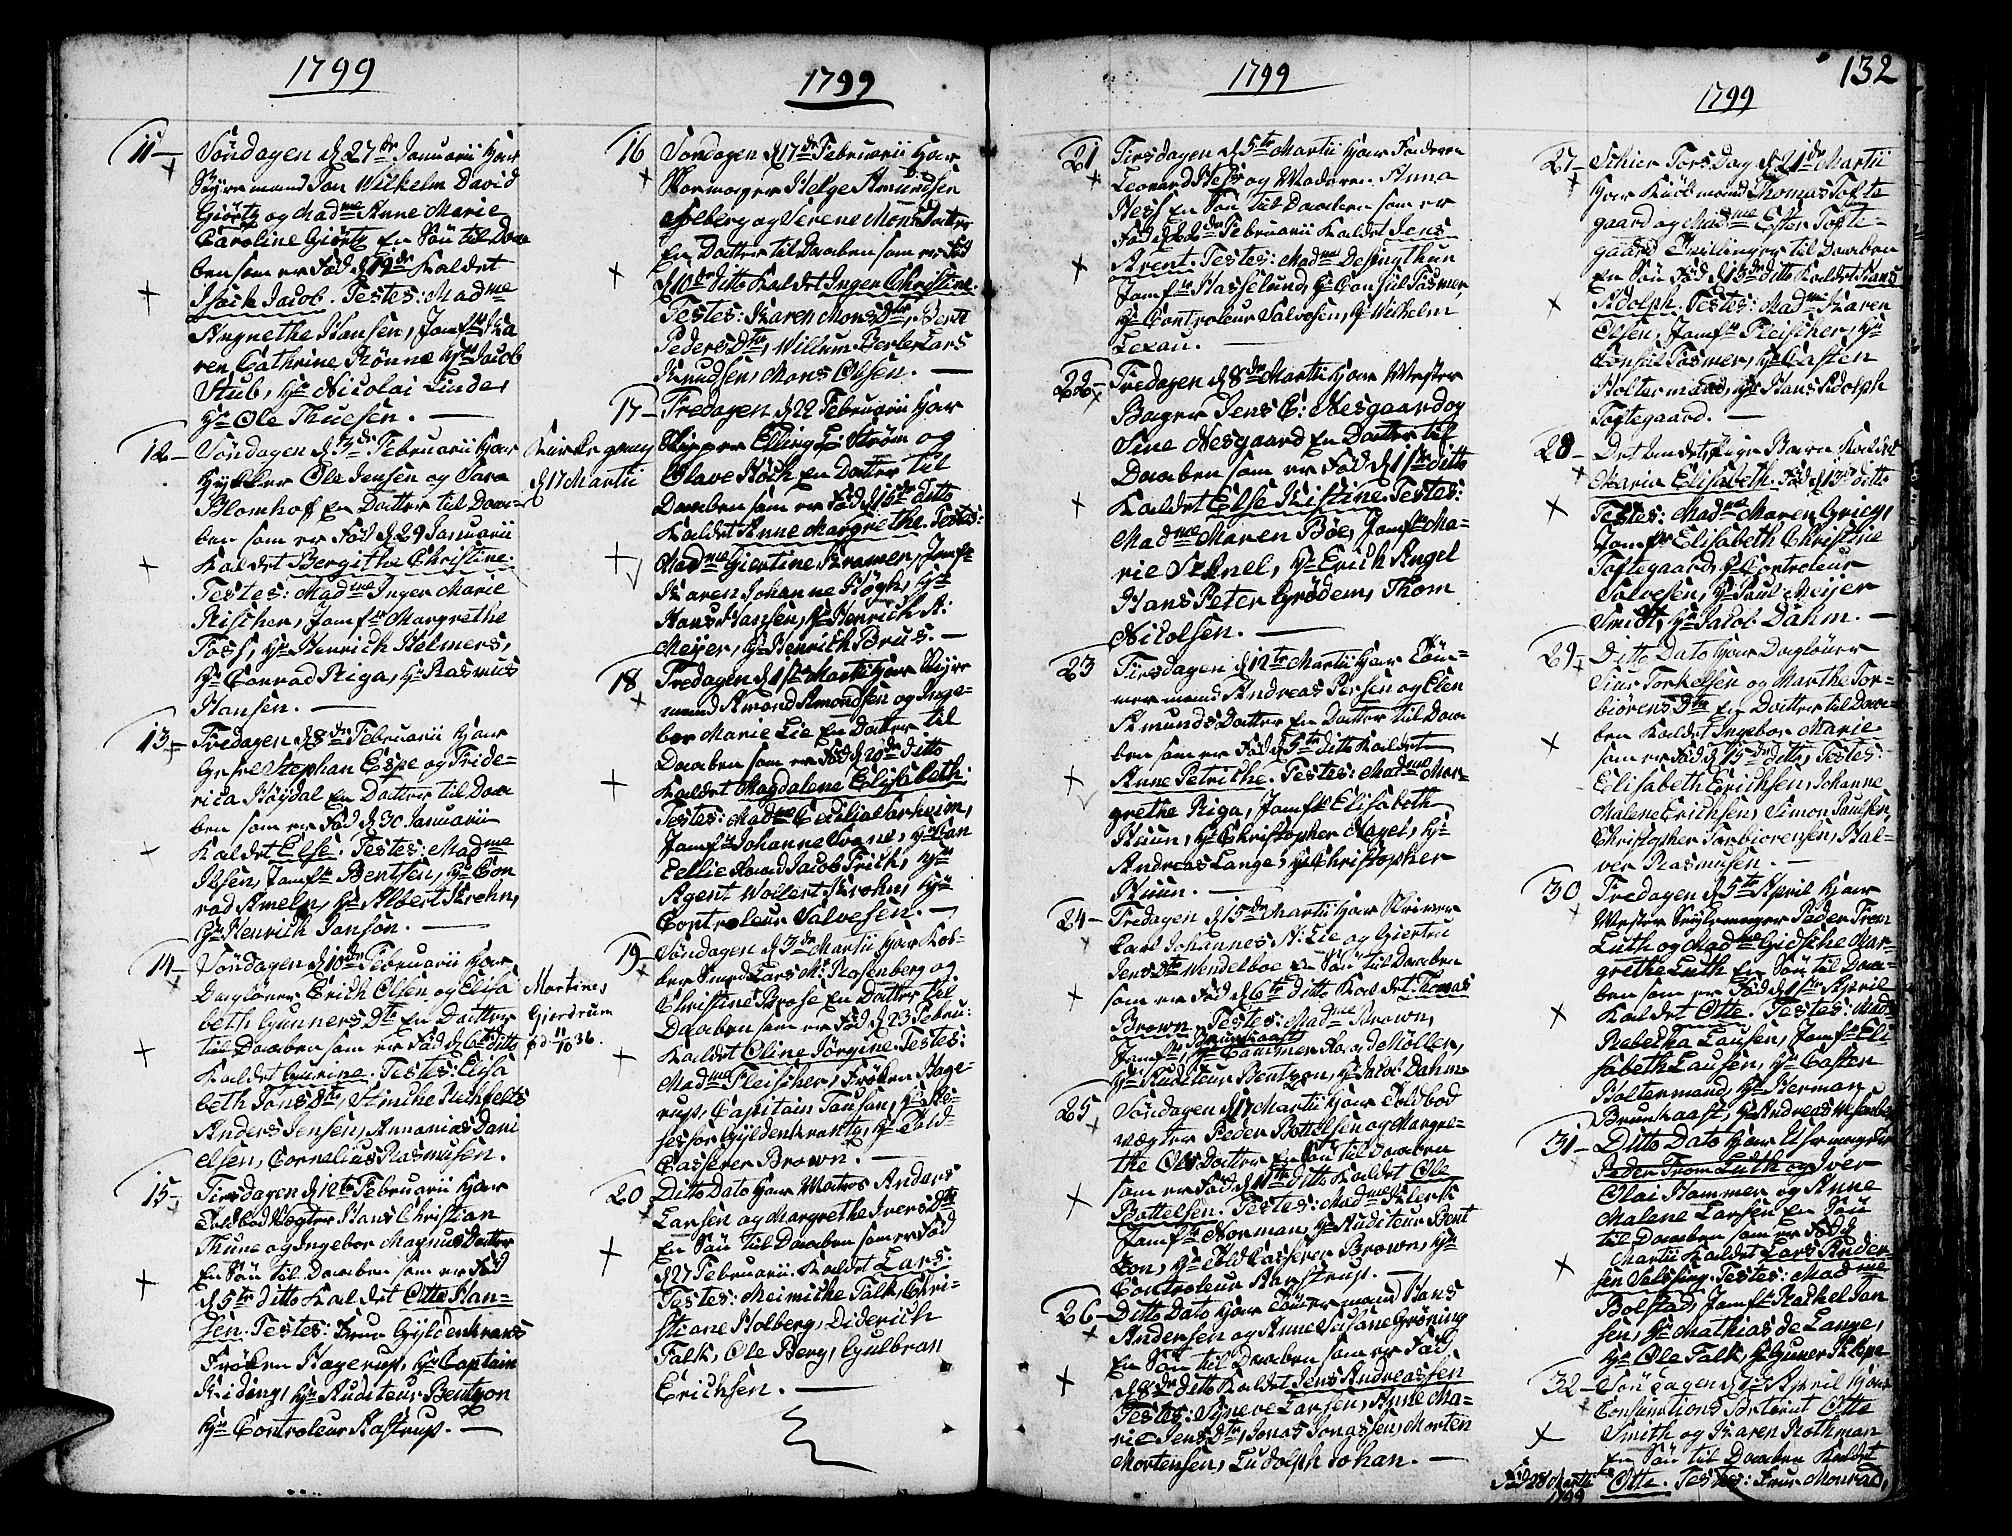 1799
11 — Söndagen d 27de Januarii hgar
Styrmand Jan Wilhelm David
Giörtz og Madme Anne Marie
Caroline Giörtz En Sön til Daa
ben som er Föd d 19de Kaldet
Isach Jacob. Testes: Madme
Angnethe Hansen, Jomfr Ka
ren Cathrine Rönne Hr Jacob
Stub, Hr Nicolai Linde,
Hr Ole Thuesen. —
12 — Söndagen d 3de Februarii hgar
Ole Jensen og Sara
Blomhof En Datter til Daa-
ben som er Föd d 29 Januarii
Kaldet Bergithe Christine.
Testes: Madme Inger Marie
Rischer, Jomfr Margrethe
Foss, Hr Henrich Helmers,
Hr Conrad Riga, Hr Rasmus
Hansen. —
13 — Fredagen d 8de Februarii hgar
Stephan Espe og Fride-
rica Höydal En Datter til Daa
ben som er Föd d 30 Januarii
Kaldet Else. Testes: Madme
Ilsen, Jomfr Bentsen, Hr Con
rad Ameln, Hr Albert Krohn,
Hr Henrich Janson. —
14 — Söndagen d 10de Februarii hgar
Daglöner Erich Olsen og Elisa
beth Gunners Dtr En Datter
til Daaben som er Föd d 6te ditto
Kaldet Gurine. Testes: Elisa
beth Jons Dtr,
Anders Jensen, Annanias Dani
elsen, Cornelius Rasmusen.
15 — Tirsdagen d 12te Februarii hgar
Toldbod Vegter Hans Christian
Thune og Ingebor Magnus Datter
En Sön til Daaben som er Föd
d 5te ditto Kaldet Otto Han-
sen. Testes: Frue Gyldenkrans
Fröken Hagerup, Hr Captain
Riding, Hr Auditeur Bentzon
Hr Controleur Rastrup. —
Kirkegang
d 17 Martii
Martines
Gierdrum
1799
16 Söndagen d 17de Februarii hgar
Skomager Helge Amundsen
og Serene Mons Datter
En Datter til Daaben som er Föd
d 10de ditto Kaldet Inger Christine.
Testes: Karen Mons Dtr, Berte
Peders Dtr, Willum Lars
Knudsen, Mons Olsen. —
17 — Fredagen d 22 Februarii hgar
Skipper Elling L: Ström og
Olave Höch En Datter til
Daaben som er Föd d 16de ditto
Kaldet Anne Margrethe. Testes:
Madme Giertine Kramer, Jomfr
Karen Johanne Högh, Hr
Hans Hansen, Hr Henrich A:
Meyer, Hr Henrich Brus. —
18 Fredagen d 1ste Martii hgar Styr
mand Amond Amondsen og Inge-
bor Marie Lie En Datter til
Daaben som er Föd d 20de ditto
Kaldet Magdalene Elisabeth.
Testes: Madme Cecilia
Jomfr Johanne Svane, Hr Can
Jacob Frich, Hr
Agent Wollert Krohn, Hr
Controleur Salvesen. —
19 — Söndagen d 3de Martii hgar Kob-
ber Smed Lars M: Rosenberg og
Christine Brose En Datter til
Daaben som er Föd d 23 Febru:
Kaldet Oline Jörgine. Testes:
Madme Fleischer, Fröken Hage-
rup, Capitain Tausan, Hr As-
sessor Gyldenkrantz, Hr Told-
Casserer Brown. —
20 Ditto Dato hgar Matros Anders
Larsen og Margrethe Ivers Dtr
En Sön til Daaben som er Föd
d 27 Februarii. Kaldet Lars.
Testes: Meimiche Falk, Chri-
stiane Holberg, Diderich
Falk, Ole Berg, Gulbran
Erichsen. —
1799
21 Tirsdagen d 5te Martii hgar Faderen
Leonard Hess og Moderen Anna
Hess En Sön til Daaben som er
Föd d 22de Februarii Kaldet Jens
Arent. Testes: Madme Desingthun
Jomfr Hasselund, Hr Consul Fasmer,
Hr Controleur Salvesen, Hr Wilhelm
Lexau. —
22 — Fredagen d 8de Martii hgar Mester
Bager Jens C: Nesgaard og
Sine Nesgaard En Datter til
Daaben som er Föd d 1ste ditto
Kaldet Else Kistine. Testes:
Madme Maren Böe, Jomfr Ma-
rie Schnel, Hr Erich Angel
Hans Peter Grödem, Thom
Nicolsen. —
23 Tirsdagen d 12te Martii hgar Töm-
mermand Andreas Persen og Elen
Amunds Datter En Datter til Daa
ben som er Föd d 5te ditto Kaldet
Anne Petrithe. Testes: Madme Mar-
grethe Riga, Jomfr Elisabeth
Kuun, Hr Christopher Nagel, Hr
Andreas Lange, Hr Christopher
Kuun. —
24 — Fredagen d 15de Martii hgar Skriver
Carl Johannes N: Lie og Giertru
Jens Dtr Wendelboe En Sön til Daaben
som er Föd d 6te ditto Kaldet Thomas
Brown. Testes: Madme Brown,
Jomfr Brunkaast Hr Cammer Raad Möller,
Hr Auditeur Bentzon, Hr Jacob Dahm
25 Söndagen d 17 Martii hgar Toldbod
vægter Peder Bottelsen og Margre-
the Ols Datter En Sön til Daaben
som er Föd d 11te ditto Kaldet Ole
Bottelsen. Testes: Madme Klerk
Jomfr Norman, Hr Auditeur Bent
zon, Hr Told Casserer Brown, Hr
Controleur Rastrup. —
26 — Ditto Dato hgar Tömermand Hans
Andersen og Anne Gröning
En Sön til Daaben som er Föd
d 8de ditto Kaldet Jens Andreassen
Testes: Synneve Larsen, Anne Ma-
rie Jens Dtr, Jonas Jonassen, Morten
Mortensen, Ludolph Johan. —
132
1799
27 — Schier Torsdag d 21de Martii
hgar Kiöbmand Thomas Tofte
gaard og Madme Ester Tofte-
gaard Tvillinger til Daaben
en Sön Föd d 13de ditto Kaldet Hans
Adolph. Testes: Madme Karen
Olsen, Jomfr Fleischer, Hr
Consul Fasmer, Hr Casten
Holtermand, Hr Hans Adolph
Toftegaard. —
28 — Det andet Pige Barn Kaldet
Maria Elisabeth. Föd d 13de ditto
Testes: Madme Maren Grieg,
Jomfr Elisabeth Christie
Toftegaard, Hr Controleur
Salvesen, Hr Paul Meyer
Smidt, Hr Jacob Dahm. —
29 — Ditto Dato hgar Daglöner
Siur Torkelsen og Marthe Tor-
biorens Dtr En Datter til Daa-
ben Kaldet Ingebor Marie
som er Föd d 15de ditto, Testes:
Elisabeth Erichsen, Johanne
Malene Erichsen, Simon Paulsen,
Christopher Torbiorensen, Hal-
ver Rasmusen. —
30 Fredagen d 5te April hgar
Mester Peder From
Luth og Madme Gidsche Mar-
grethe Luth En Sön til Daa-
ben som er Föd d 1ste April
Kaldet Otte. Testes: Madme
Rebecka Lausen, Jomfr Eli
sabeth Lausen, Hr Casten
Holtermand, Hr Herman
Brunkaast, Hr Andreas
31 — Ditto Dato hgar
Peder From Luth og Iver
Olai Hammer og Anne
Malene Larsen En Sön
til Daaben som er Föd d
Martii Kaldet Lars Ander-
sen Salssing. Testes: Madme
Bolstad, Jomfr Rachel Jan
sen, Hr Mathias de Lange,
Hr Ole Falk, Hr Guner
32 — Söndagen d April hgar
Consumtions Betient Otte
Smith og Karen Rothman
En Sön til Daaben Kaldet
Föd 28 Martii Otte. Testes: Frue Monrad,
1799